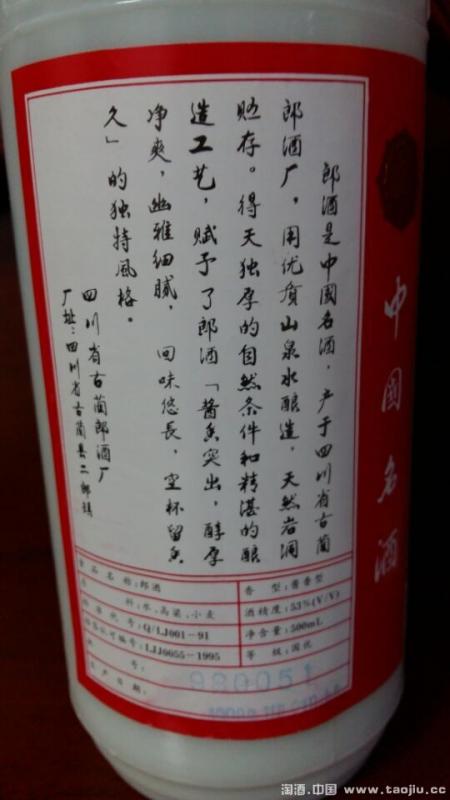 郎酒是中國名酒，产于四川省古蔺
郎酒厂，用优质山泉水酿造，天然岩洞
贮存。得天独厚的自然条件和精湛的酿
造工艺，赋予了郎酒「酱香突出，醇厚
净爽，幽雅细腻，回味悠長，空杯留香
久」的独特风格。
四川省古蔺郎酒厂
厂址：四川省古蔺县二郎镇
中國名酒
食品名称：郎酒
香 型：酱香型
料：水、高粱、小麦
酒精度：53%(V/V)
标准代号：Q/LJ001-91
净含量：500mL
编号：LJJ0055-1995
等 级：国优
号：
980051
生产日期：
淘酒.中国 www.taojiu.cc